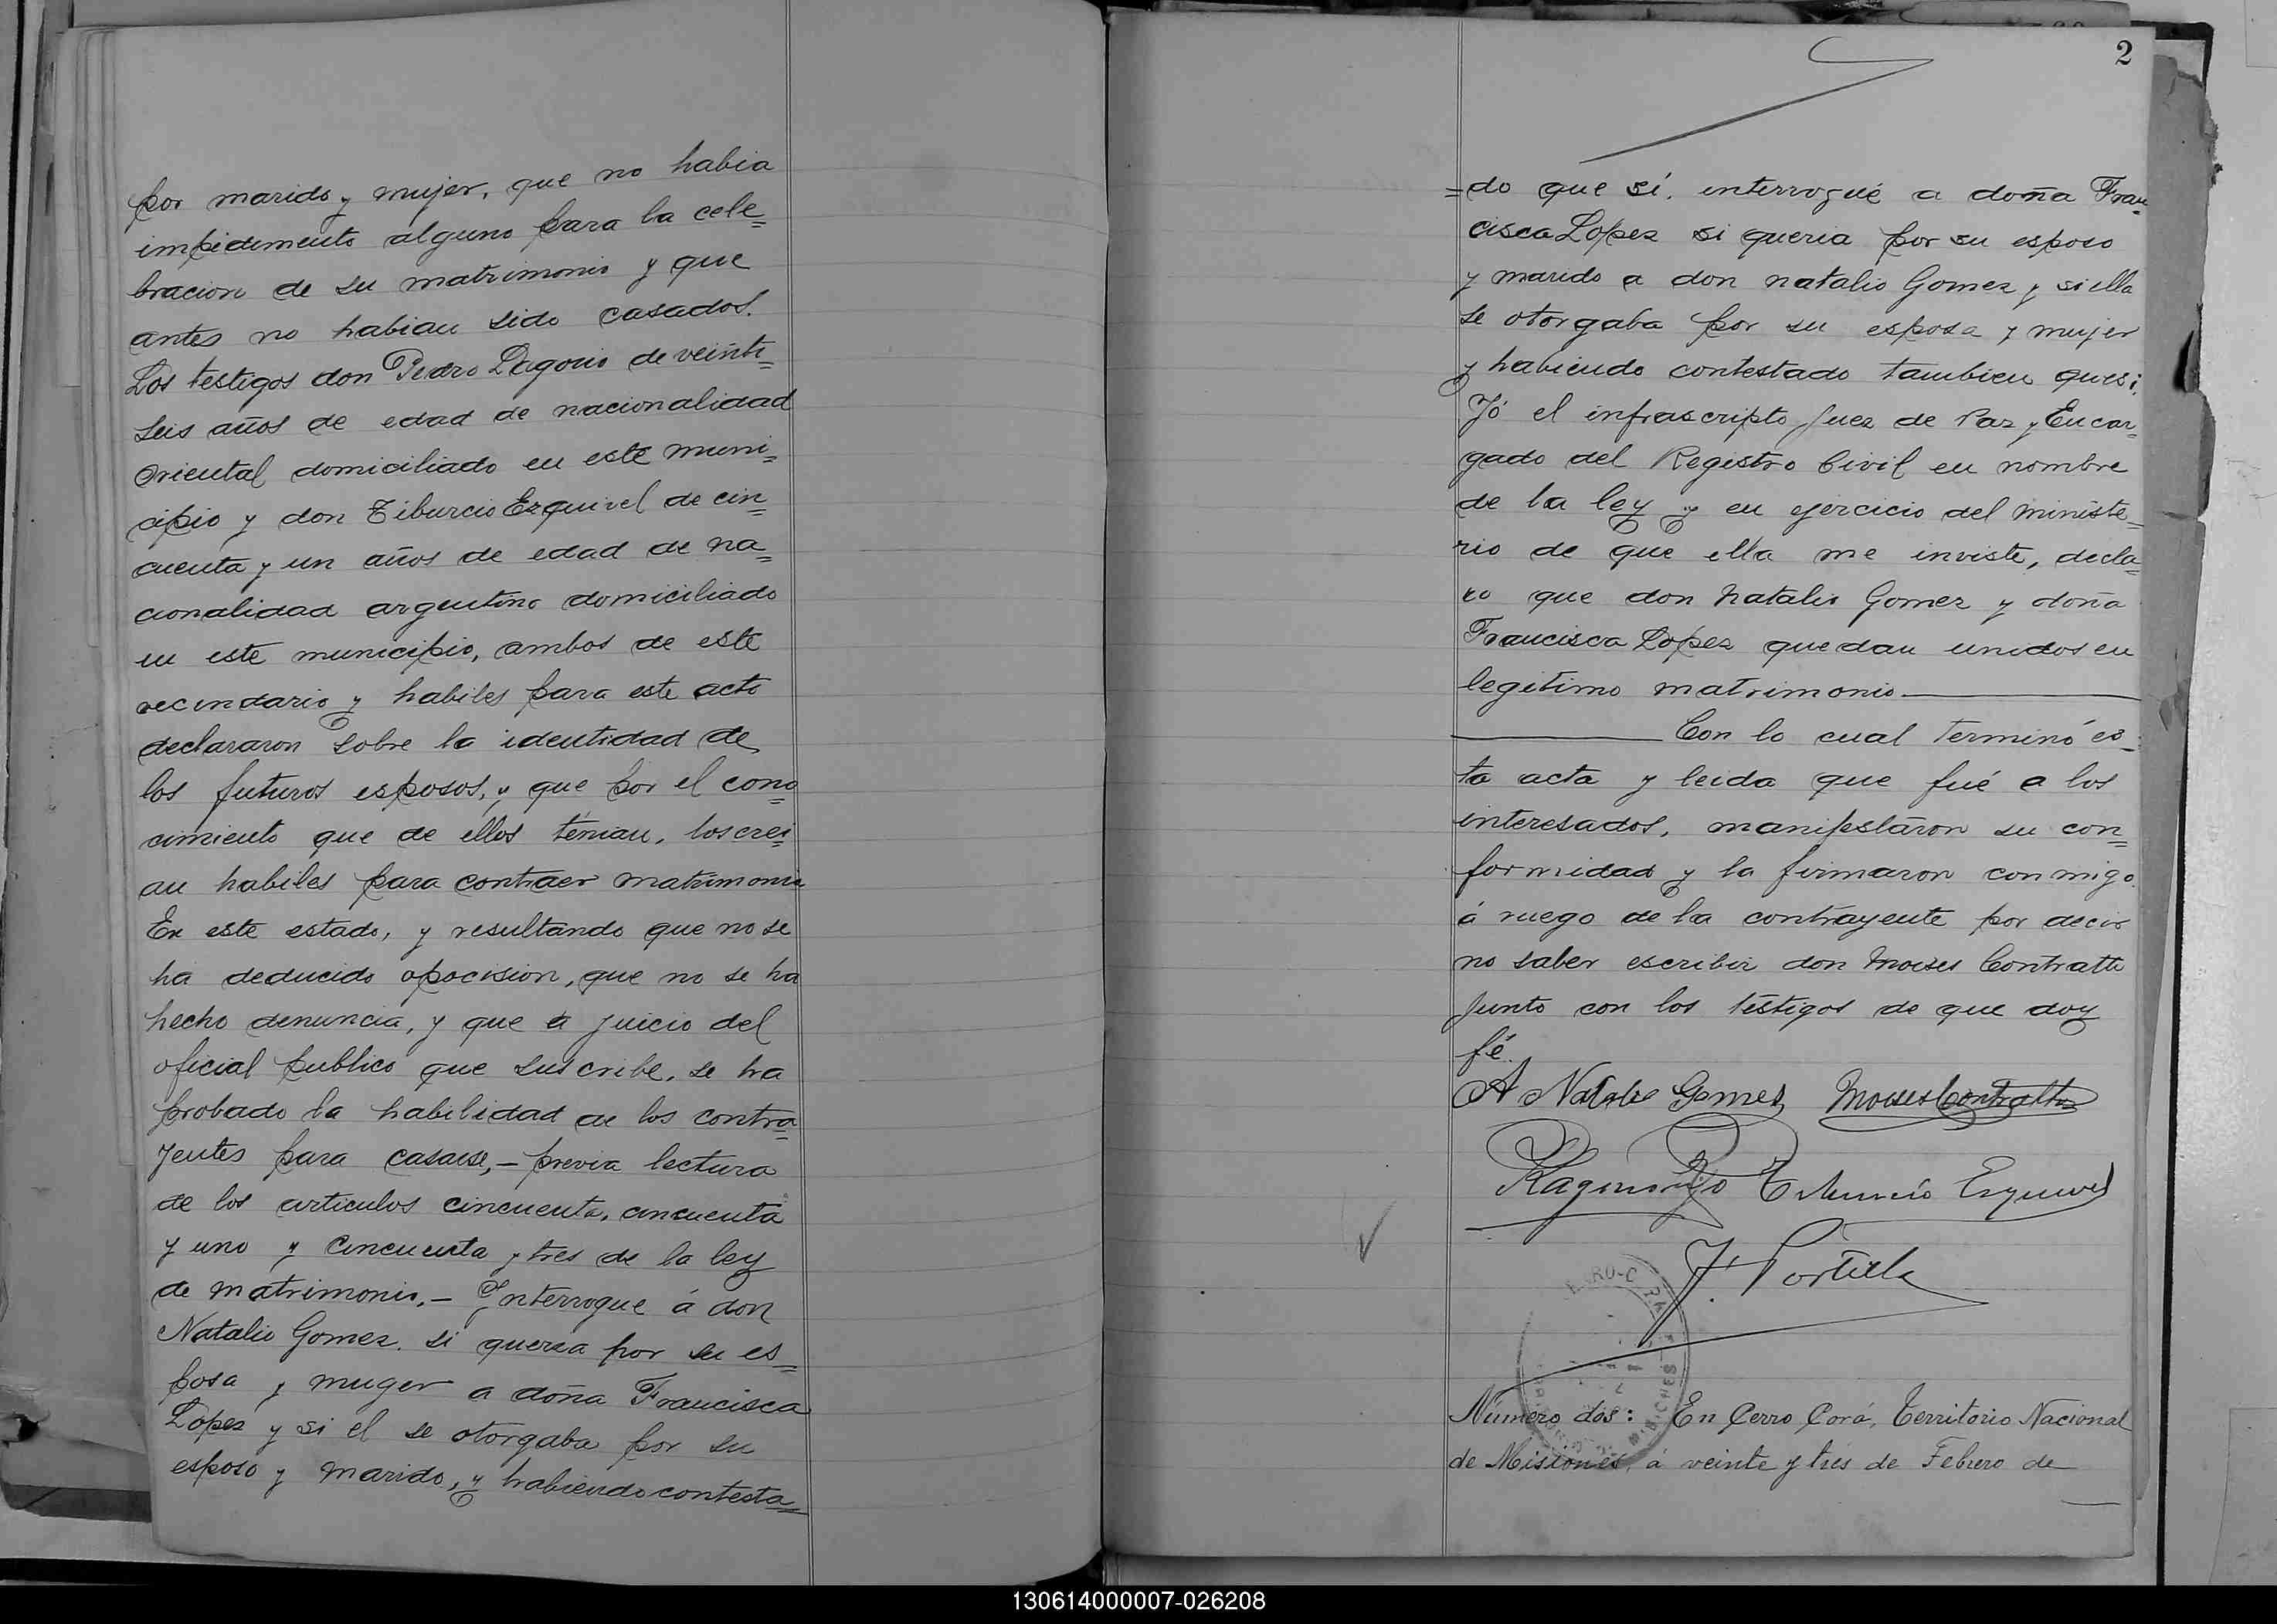 por marido y mujer, que no habia
impedimento alguno para la cele=
bracion de su matrimonio y que
antes no habian sido casados.
Los testigos don Pedro Ragonio de veinti=
seis años de edad de nacionalidad
Oriental domiciliado en este muni=
cipio y don Tiburcio Ezquivel de cin=
cuenta y un años de edad de na=
cionalidad argentino domiciliado
en este municipio, ambos de este
vecindario y habiles para este acto
declararon sobre la identidad de
los futuros esposos, y que por el cono=
cimiento que de ellos tenian, los crei=
an habiles para contraer matrimonio
En este estado, y resultando que no se
ha deducido opocision, que no se ha
hecho denuncia, y que a juicio del
oficial publico que suscribe, se ha
probado la habilidad de los contra=
yentes para casarse,- previa lectura
de los articulos cincuenta, cincuenta
y uno y cincuenta y tres de la ley
de matrimonio.- Interrogue á don
Natalio Gomez. si queria por su es=
posa y muger a doña Francisca
Lopez y si el se otorgaba por su
esposo y marido, y habiendo contesta=
2
=do que sí. interrogué a doña Fran=
cisca Lopez si queria por su esposo
y marido a don natalio Gomez y si ella
se otorgaba por su esposa y mujer
y habiendo contestado tambien que si;
Yó el infrascripto Juez de Paz y Encar=
gado del Registro Civil en nombre
de la ley y en ejercicio del ministe=
rio de que ella me inviste, decla=
ro que don Natalio Gomez y doña
Francisca Lopez quedan unidos en
legitimo matrimonio
Con lo cual terminó es=
ta acta y leida que fué a los
interesados, manifestaron su con=
formidad y la firmaron conmigo.
á ruego de la contrayente por decir
no saber escribir don Moises Contratti
junto con los testigos de que doy
fé.
A Natalio Gomez Moises Contratti
Tiburcio Ezquivel
J. Portilla
Número dos: En Cerro Corá, Territorio Nacional
de Misiones, á veinte y tres de Febrero de
130614000007-026208